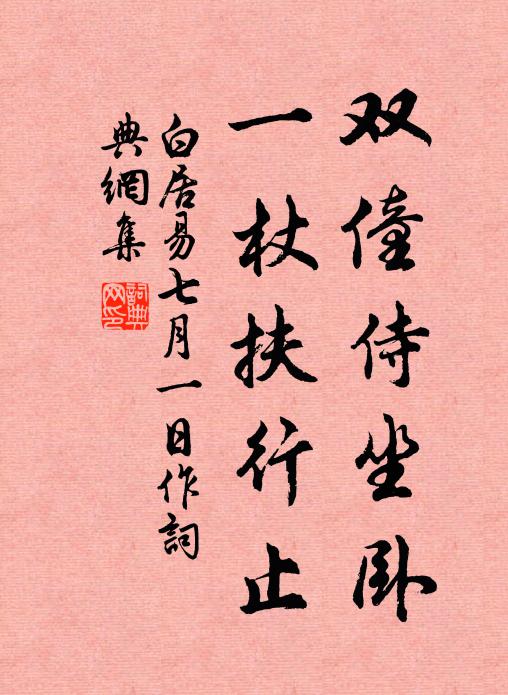 双僮侍坐卧
一杖扶行止
白居易七月一日作詞
典網集
詞典
网印